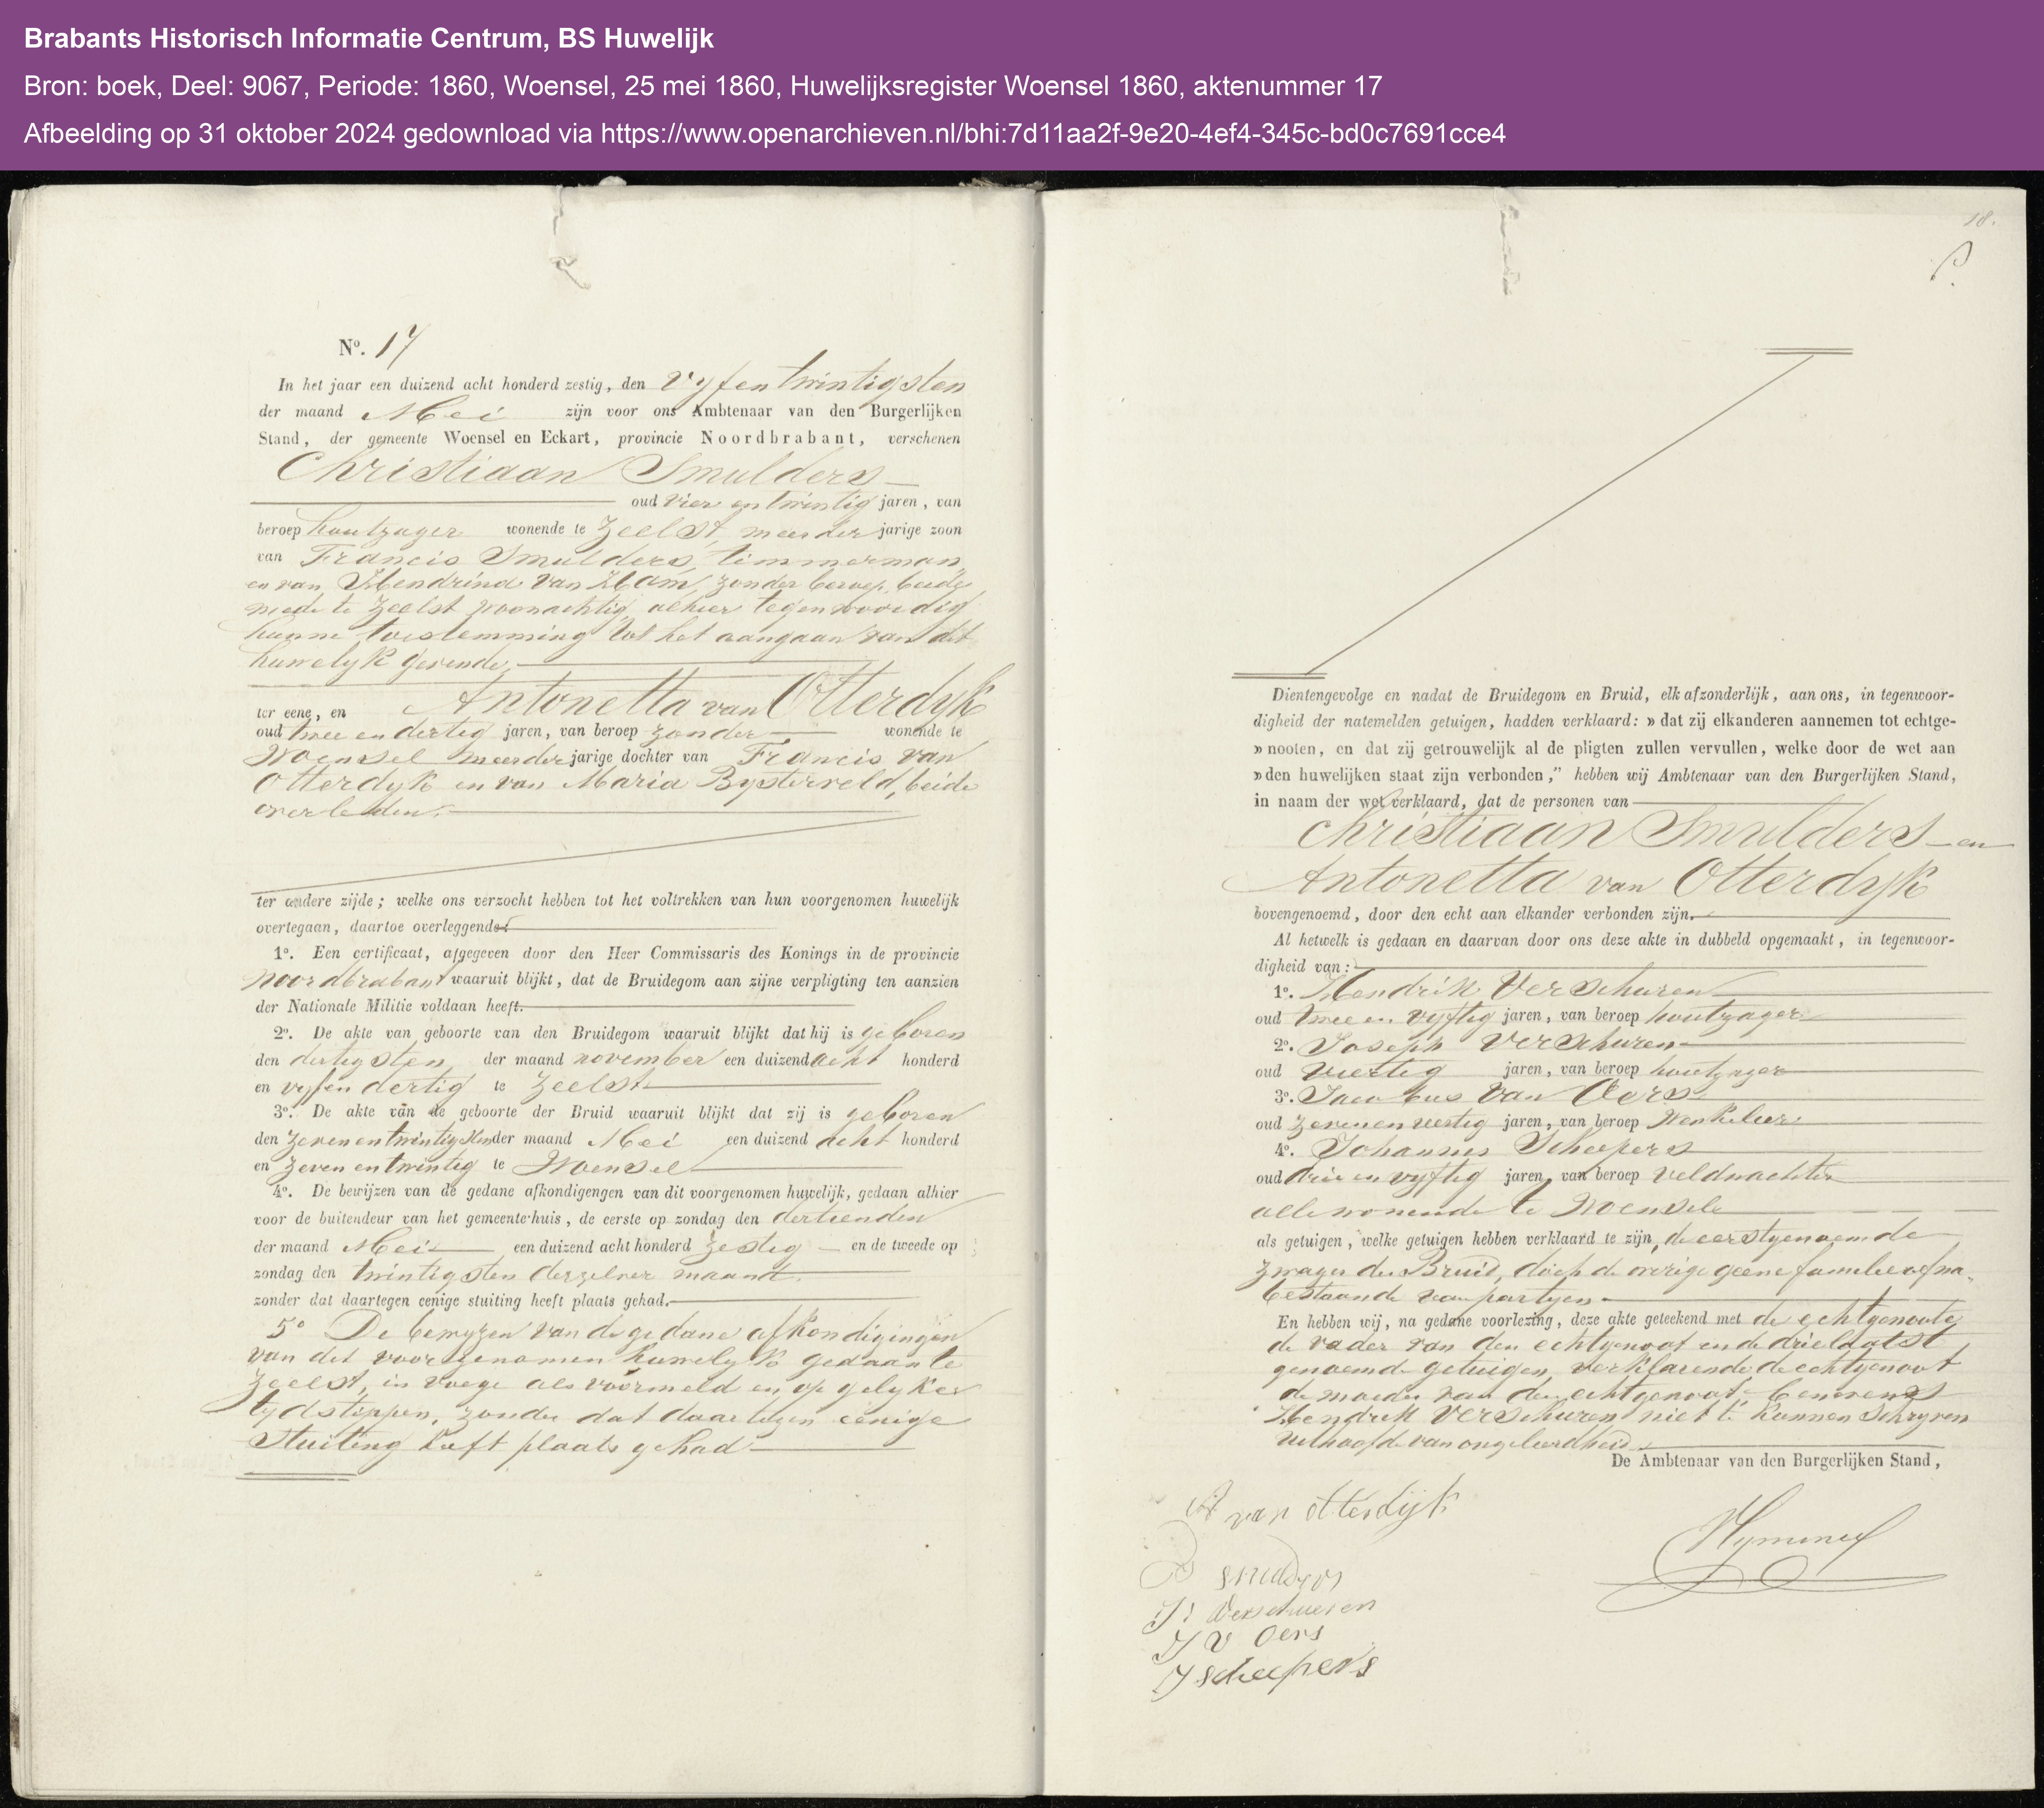 Brabants Historisch Informatie Centrum, BS Huwelijk
Bron: boek, Deel: 9067, Periode: 1860, Woensel, 25 mei 1860, Huwelijksregister Woensel 1860, aktenummer 17
Afbeelding op 31 oktober 2024 gedownload via https://www.openarchieven.nl/bhi:7d11aa2f-9e20-4ef4-345c-bd0c7691cce4
No. 17
In het jaar een duizend acht honderd zestig, den vyfentwintigsten
der maand Mei zijn voor ons Ambtenaar van den Burgerlijken
Stand, der gemeente Woensel en Eckart, provincie Noordbrabant, verschenen
Christiaan Smulders
oud vier en twintig jaren, van
beroep houtzager wonende te Zeelst, meerder jarige zoon
van Francis Smulders, timmerman,
en van Hendrina van Ham, zonder beroep, beide
mede te Zeelst woonachtig, alhier tegenwoordig
hunne toestemming tot het aangaan van dit
huwelyk gevende,
ter eene, en Antonetta van Otterdyk
oud twee en dertig jaren, van beroep zonder wonende te
Woensel meerder jarige dochter van Francis van
Otterdyk en van Maria Bysterveld, beide
overleden.
ter andere zijde; welke ons verzocht hebben tot het voltrekken van hun voorgenomen huwelijk
overtegaan, daartoe overleggende:
1o. Een certificaat, afgegeven door den Heer Commissaris des Konings in de provincie
Noordbrabant waaruit blijkt, dat de Bruidegom aan zijne verpligting ten aanzien
der Nationale Militie voldaan heeft.
2o. De akte van geboorte van den Bruidegom waaruit blijkt dat hij is geboren
den dertigsten der maand november een duizend acht honderd
en vyfendertig te Zeelst
3o. De akte van de geboorte der Bruid waaruit blijkt dat zij is geboren
den zevenentwintigsten der maand Mei een duizend acht honderd
en zeven en twintig te Woensel
4o. De bewijzen van de gedane afkondigengen van dit voorgenomen huwelijk, gedaan alhier
voor de buitendeur van het gemeente-huis, de eerste op zondag den dertienden
der maand Mei een duizend acht honderd zestig en de tweede op
zondag den twintigsten derzelver maand.
zonder dat daartegen eenige stuiting heeft plaats gehad.
5o De bewyzen van de gedane afkondigingen
van dit voorgenomen huwelyk gedaan te
Zeelst, in voege als voormeld en op gelyke
tydstippen, zonder dat daartegen eenige
stuiting heeft plaats gehad
18.
Dientengevolge en nadat de Bruidegom en Bruid, elk afzonderlijk, aan ons, in tegenwoor-
digheid der natemelden getuigen, hadden verklaard: » dat zij elkanderen aannemen tot echtge-
» nooten, en dat zij getrouwelijk al de pligten zullen vervullen, welke door de wet aan
» den huwelijken staat zijn verbonden,” hebben wij Ambtenaar van den Burgerlijken Stand,
in naam der wet verklaard, dat de personen van
Christiaan Smulders en
Antonetta van Otterdyk
bovengenoemd, door den echt aan elkander verbonden zijn.
Al hetwelk is gedaan en daarvan door ons deze akte in dubbeld opgemaakt, in tegenwoor-
digheid van:
1o. Hendrik Verschuren
oud twee en vyftig jaren, van beroep houtzager
2o. Joseph Verschuren
oud veertig jaren, van beroep houtzager
3o. Jacobus van Oers
oud zevenenveertig jaren, van beroep Winkelier
4o. Johannes Scheepers
oud drie en vyftig jaren, van beroep veldwachter
alle wonende te Woensel
als getuigen, welke getuigen hebben verklaard te zijn, de eerstgenoemde
zwager der Bruid, doch de overige geene familie of na-
bestaande van partyen.
En hebben wij, na gedane voorlezing, deze akte geteekend met de echtgenoote
de vader van den echtgenoot en de drie laatst
genoemde getuigen, verklarende de echtgenoot
de moeder van den echtgenoot, benevens
Hendrik Verschuren niet te kunnen schryven
uithoofde van ongeleerdheid.
De Ambtenaar van den Burgerlijken Stand,
A van Otterdijk
Smulders
J: Verschueren
J V Oers
J Scheepers